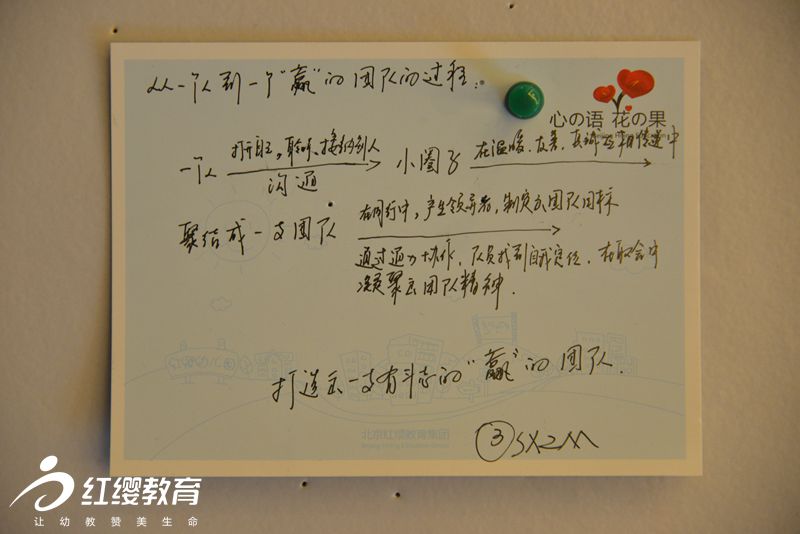 从一个人到一个“赢”的团队的过程：
心の语 花の果
一个人 打开自己，聆听、接纳别人 小圈子 在温暖、友善、真诚的互相传递中
沟通
聚结成一支团队 在同行中，产生领导者，制定出团队目标
通过通力协作，队员找到自我定位，在取舍中
凝聚出团队精神．
打造出一支有斗志的“赢”的团队．
北京红缨教育集团
③
红缨教育
让幼教赞美生命